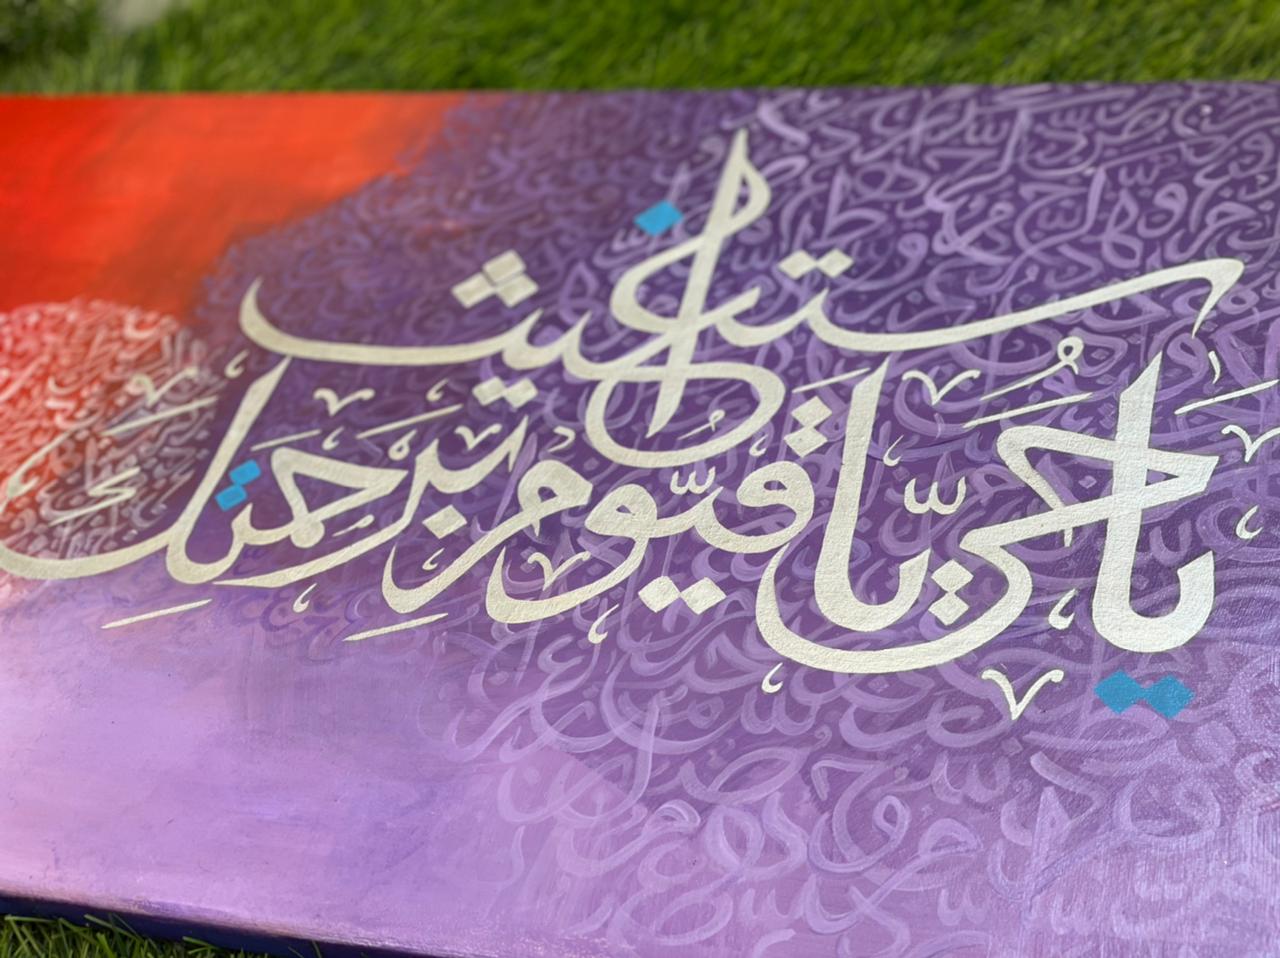 يَا حَيُّ يَا قَيُّومُ بِرَحْمَتِكَ
أستغيث